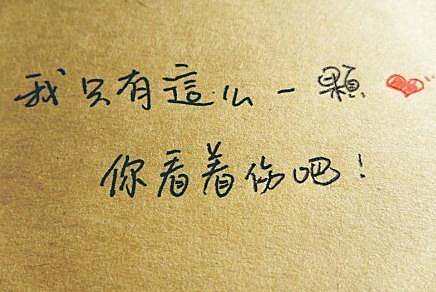 我只有這么一颗❤
你看着伤吧!